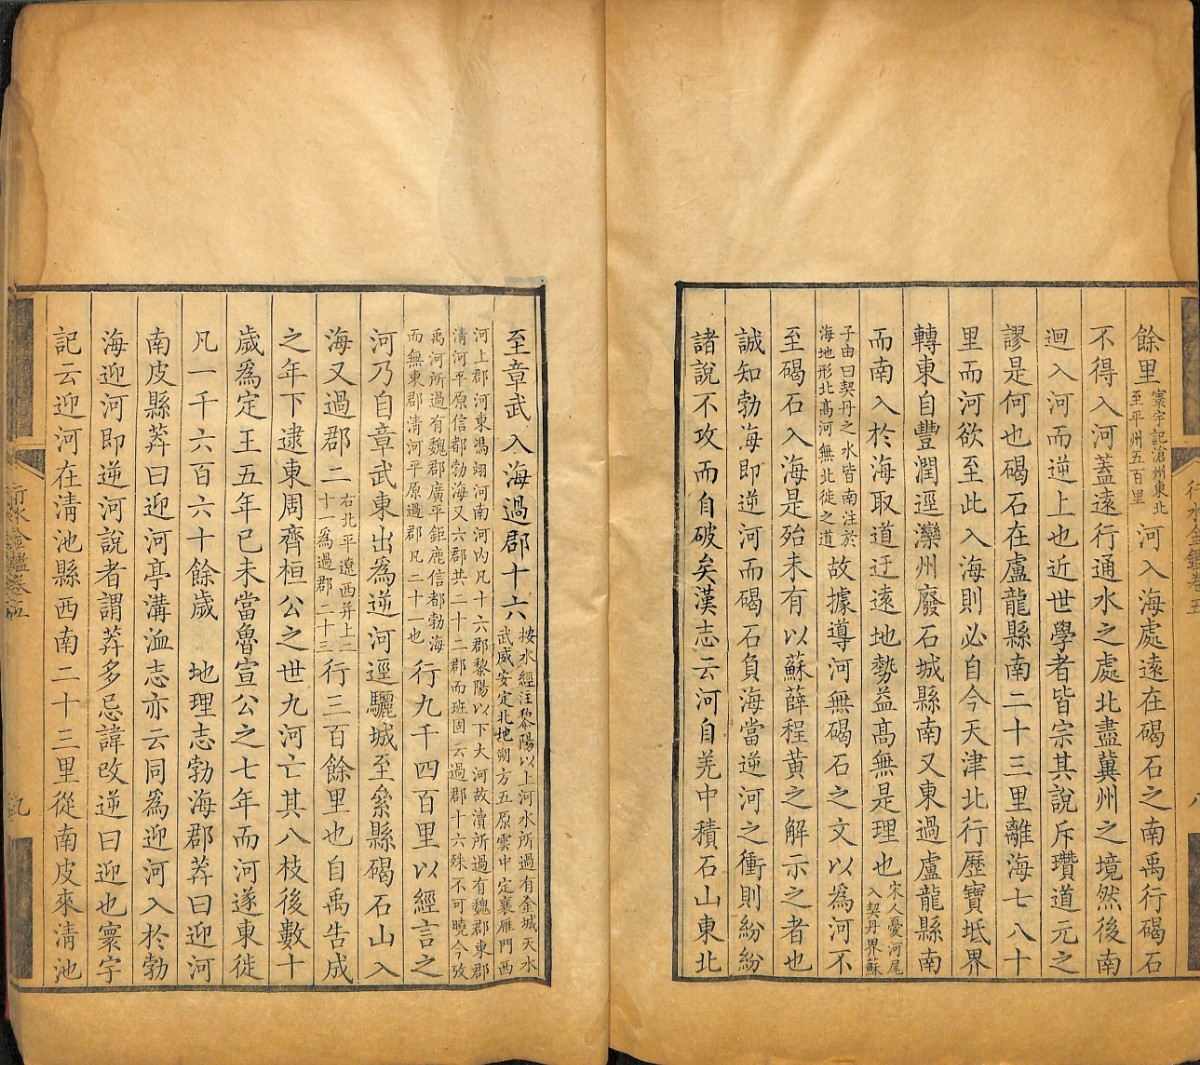 餘里寰宇記滄州東北至平州五百里河入海處遠在碣石之南禹行碣石
不得入河蓋遠行通水之處北盡冀州之境然後南
迴入河而逆上也近世學者皆宗其說斥瓚道元之
謬是何也碣石在盧龍縣南二十三里離海七八十
里而河欲至此入海則必自今天津北行歷寶坻界
轉東自豐潤逕灤州廢石城縣南又東過盧龍縣南
而南入於海取道迂遠地勢益高無是理也宋人憂河尾入契丹界蘇
子由曰契丹之水皆南注於海地形北高河無北徙之道故據導河無碣石之文以為河不
至碣石入海是殆未有以蘇薛程黃之解示之者也
誠知勃海即逆河而碣石負海當逆河之衝則紛紛
諸說不攻而自破矣漢志云河自羌中積石山東北
行水金鑑卷五
八
至章武入海過郡十六按水經注黎陽以上河水所過有金城天水武威安定北地朔方五原雲中定襄雁門西
河上郡河東馮翊河南河內凡十六郡黎陽以下大河故瀆所過有魏郡東郡清河平原信都勃海又六郡共二十二郡而班固云過郡十六殊不可曉今攷
禹河所過有魏郡廣平鉅鹿信都勃海而無東郡清河平原過郡凡二十一也行九千四百里以經言之
河乃自章武東出為逆河逕驪城至絫縣碣石山入
海又過郡二右北平遼西并上二十一為過郡二十三行三百餘里也自禹告成
之年下逮東周齊桓公之世九河亡其八枝後數十
歲為定王五年己未當魯宣公之七年而河遂東徙
凡一千六百六十餘歲　地理志勃海郡莽曰迎河
南皮縣莽曰迎河亭溝洫志亦云同為迎河入於勃
海迎河即逆河說者謂莽多忌諱改逆曰迎也寰宇
記云迎河在清池縣西南二十三里從南皮來清池
行水金鑑卷五
九